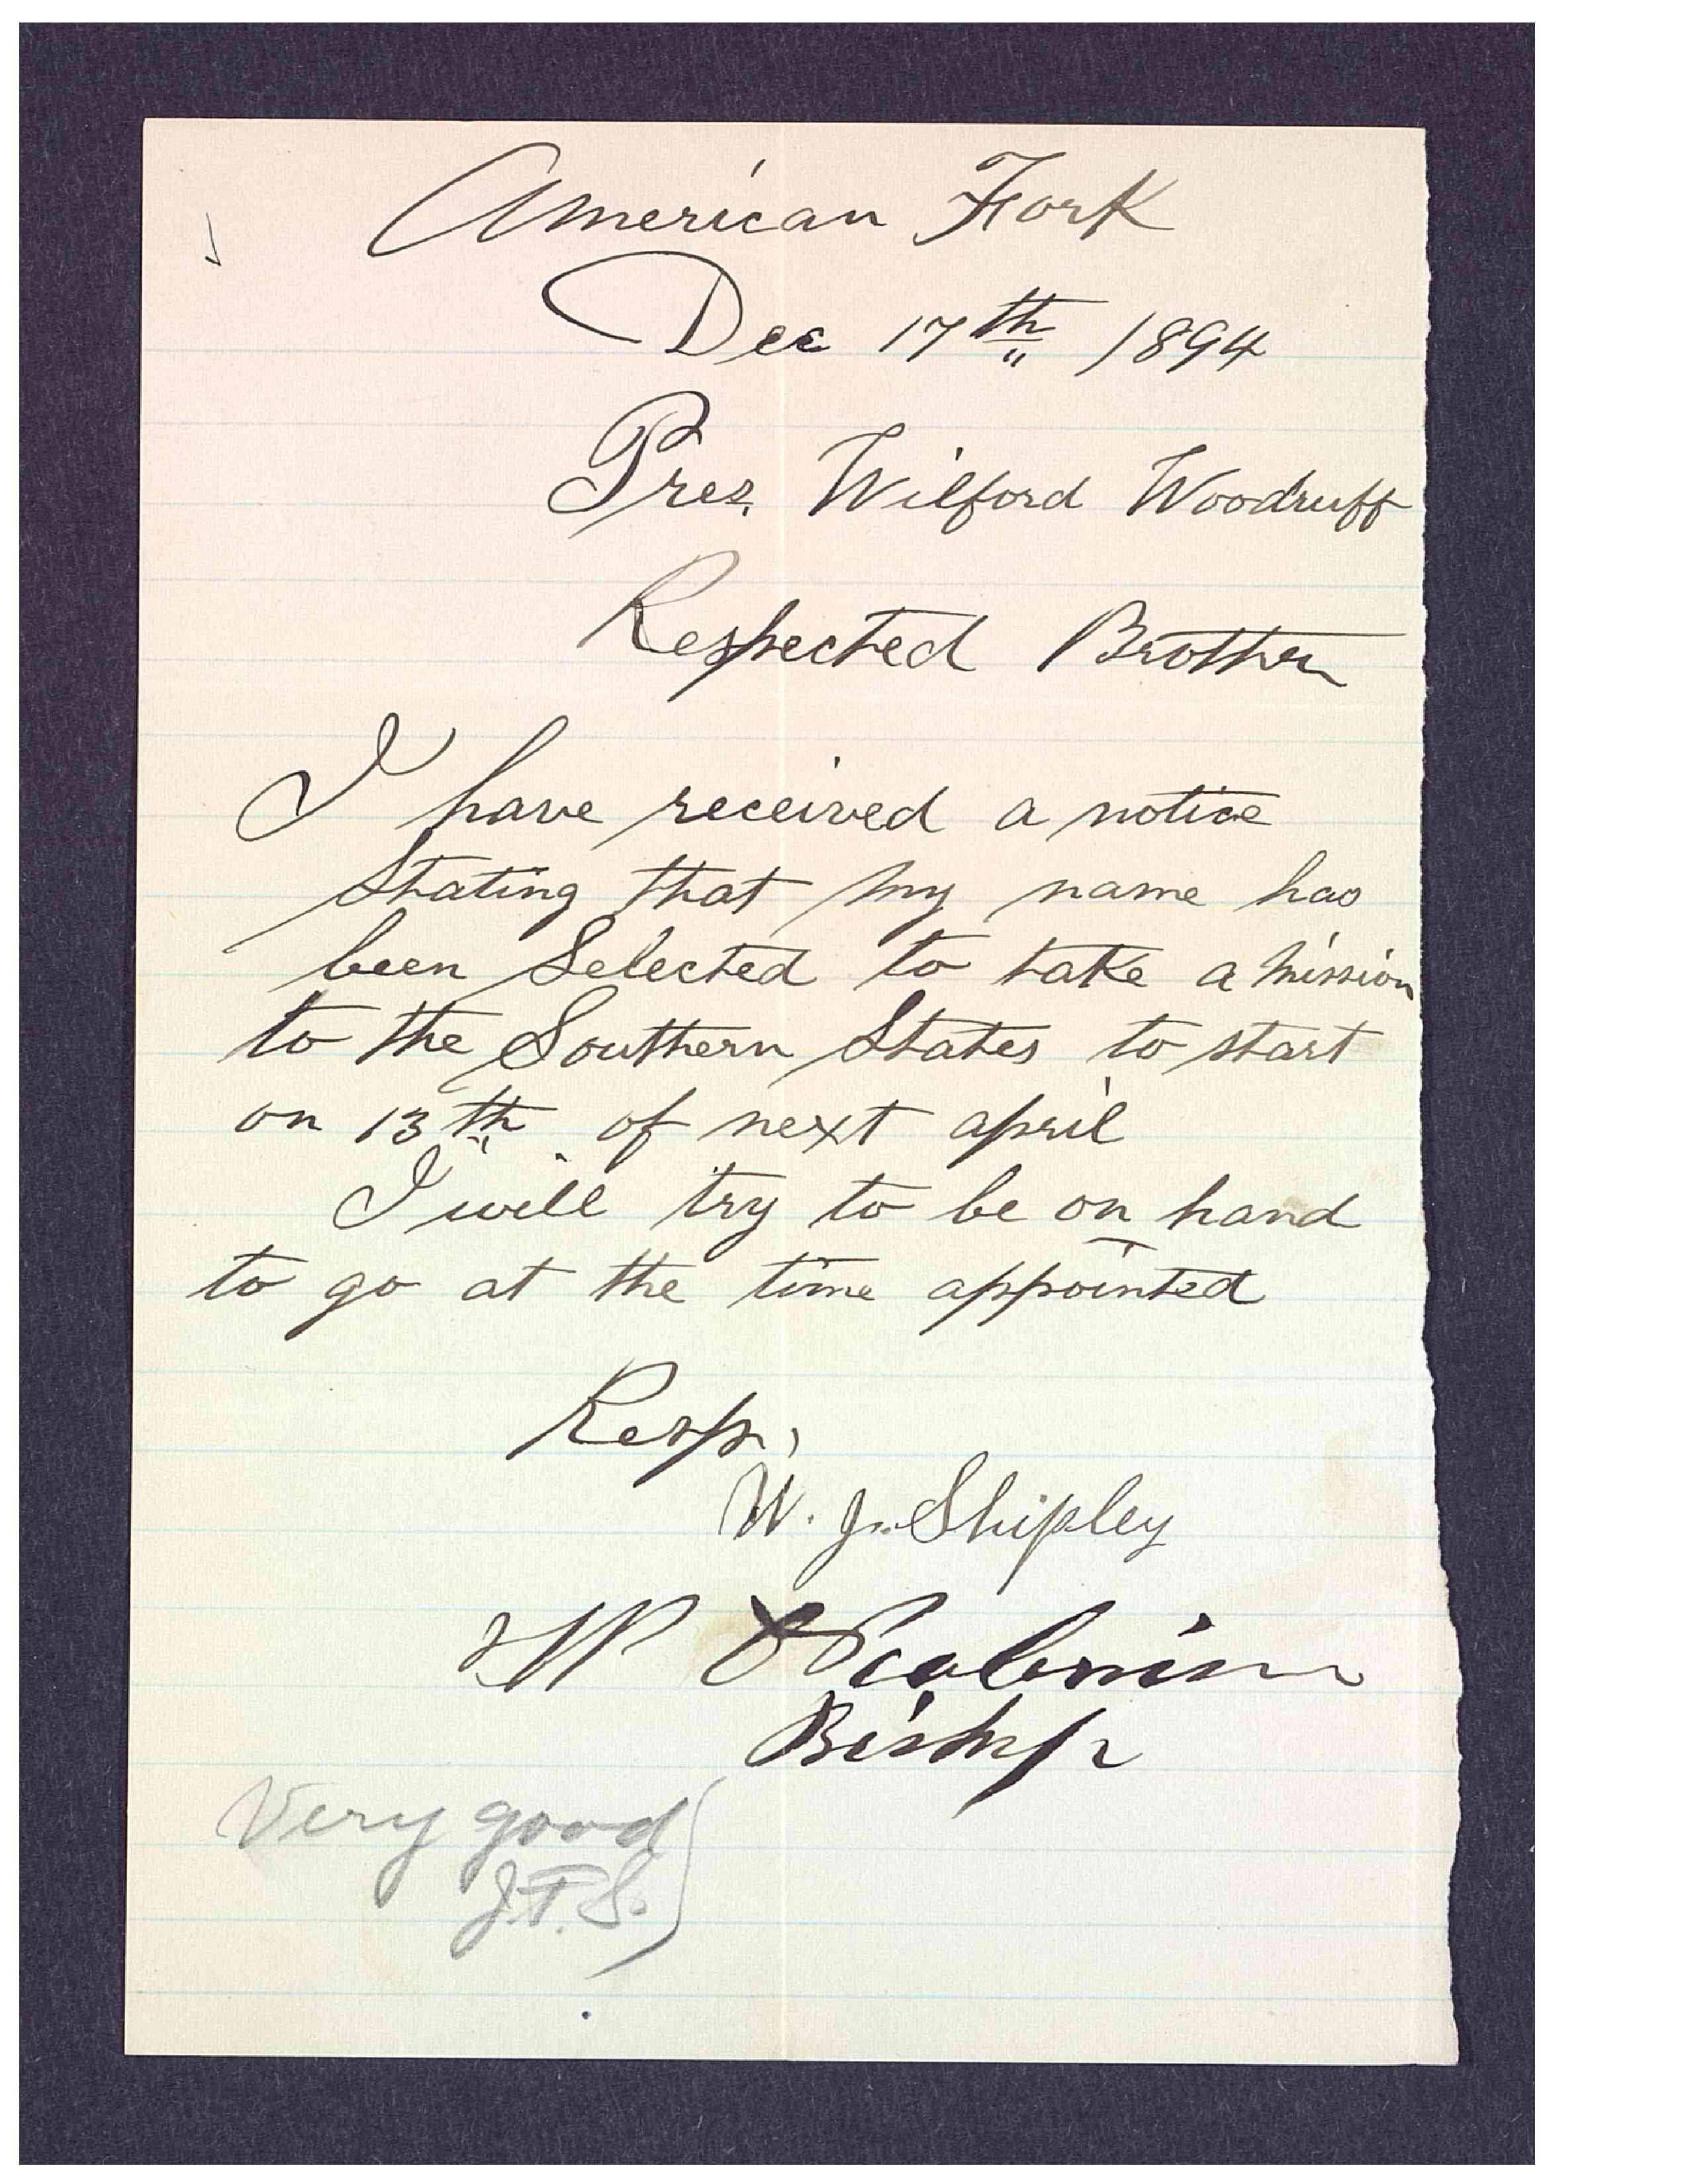 American Fork
Dec 17th 1894
Pres. Wilford Woodruff
Respected Brother
I have received a notice
Stating that my name has
been Selected to take a mission
to the Southern States to start
on 13th of next april
I will try to be on hand
to go at the time appointed
Resp.
W. J. Shipley
Bishop
Very good
J.F.S.